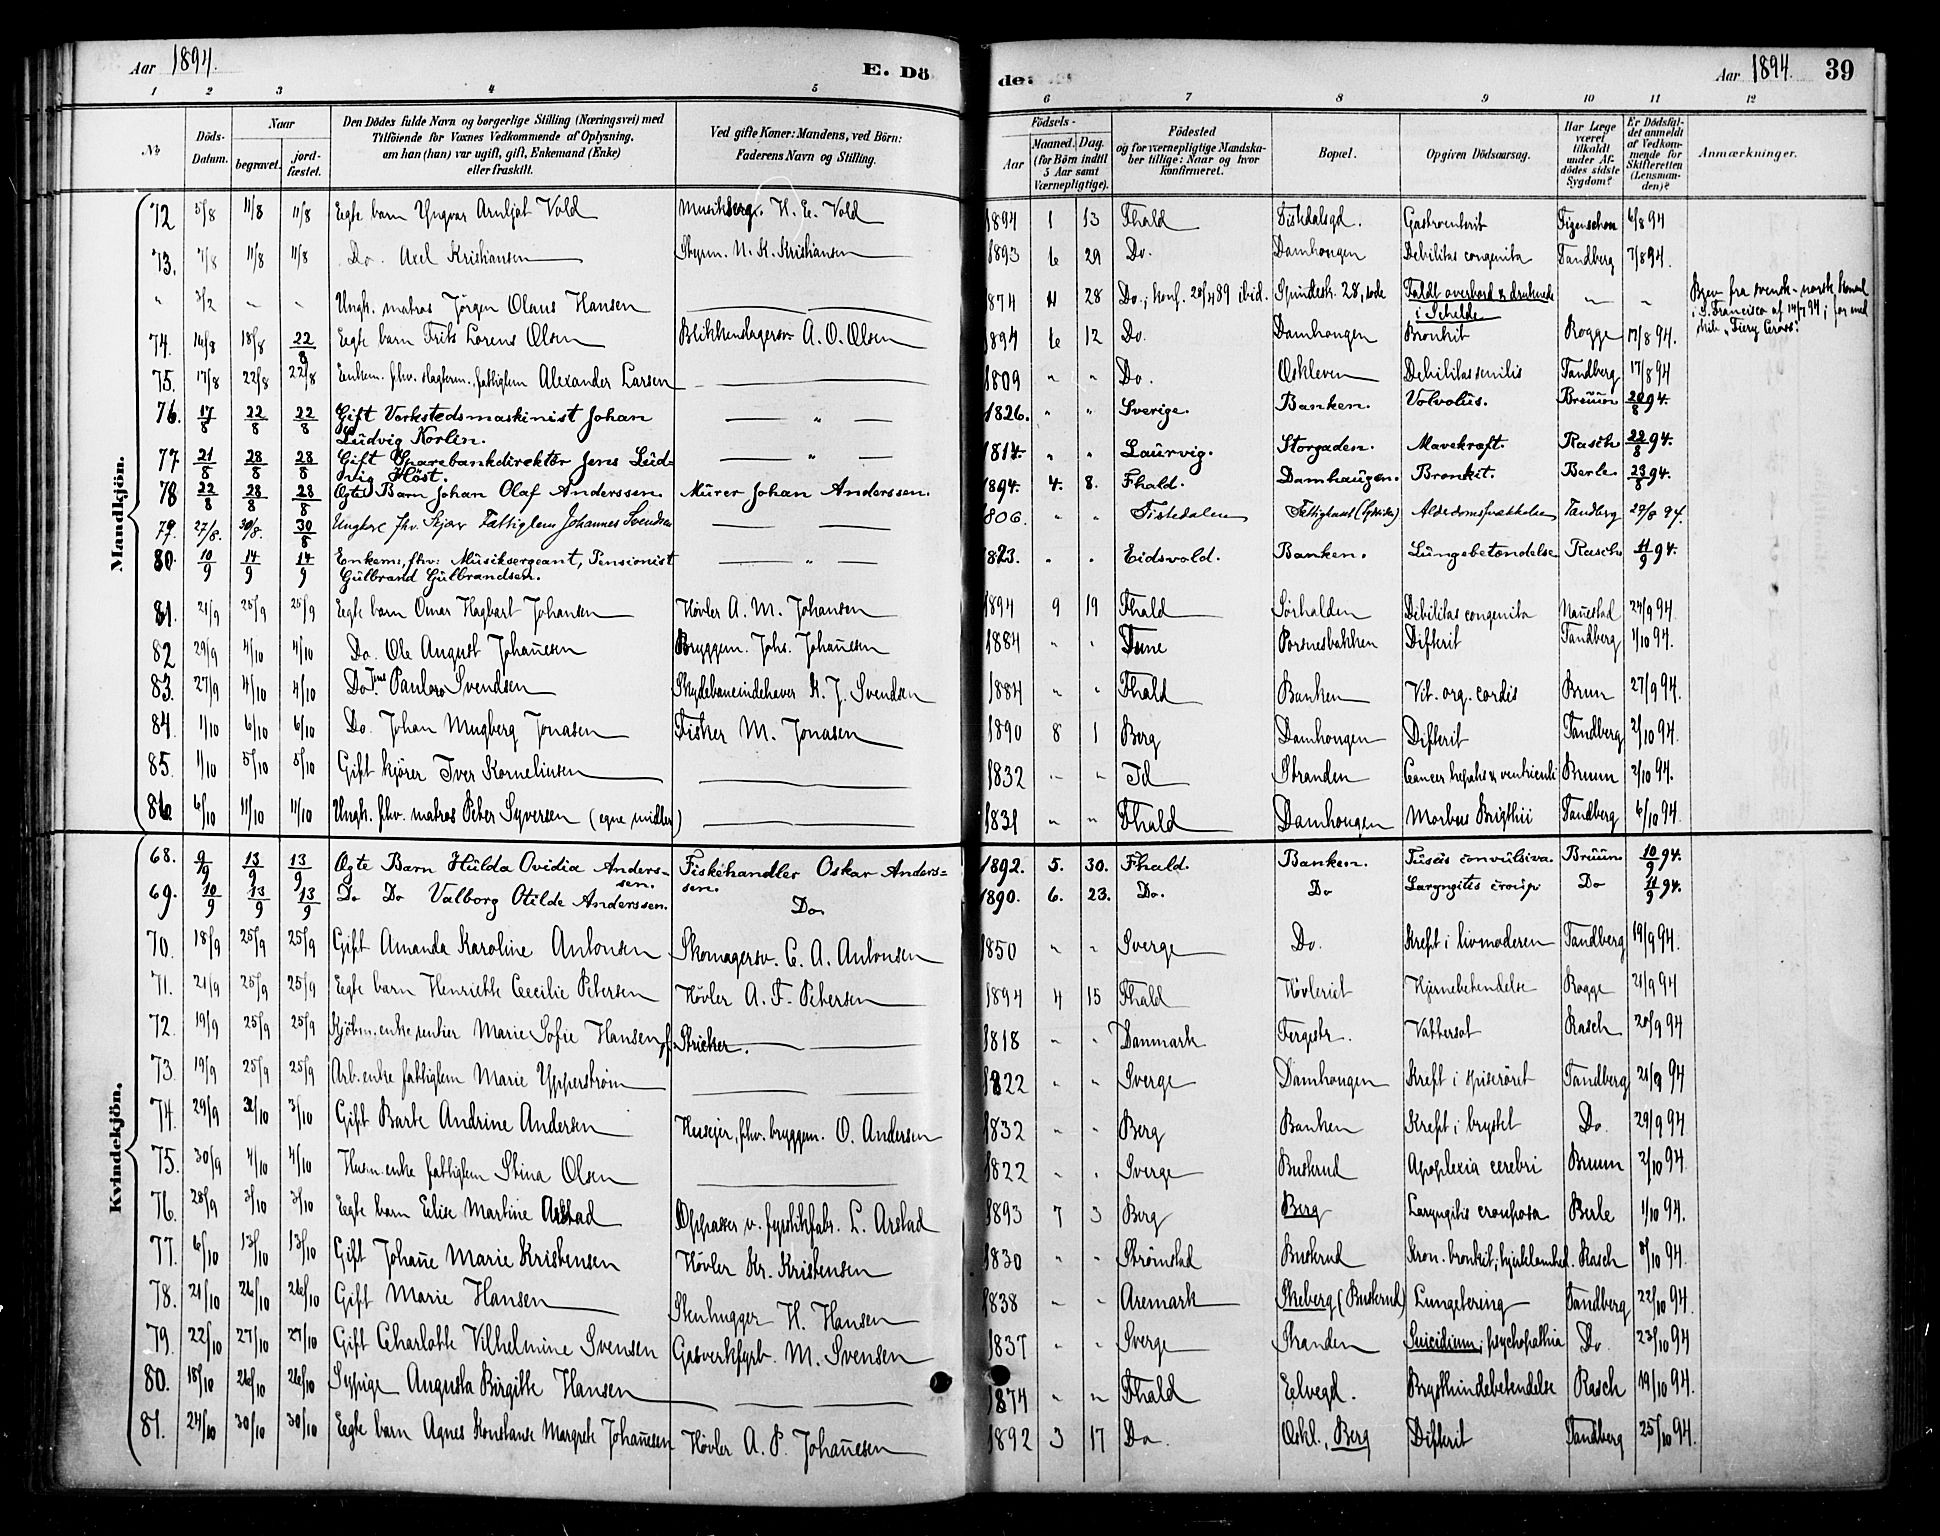 Aar 1894. E. Dö
de: Aar 1894. 39
1 2 3 4 5 6 7 8 9 10 11 12
№ Döds-Datum. Naar begravet. jord-fæstet. Den Dödes fulde Navn og borgerlige Stilling (Næringsvei) med Tilföiende for Voxnes Vedkommende af Oplysning, om han (hun) var ugift, gift, Enkemand (Enke) eller fraskilt. Ved gifte Koner: Mandens, ved Börn: Faderens Navn og Stilling. Födsels- Aar Maaned. Dag. (for Börn indtil 5 Aar samt Værnepligtige). Födested og for værnepligtige Mandskaber tillige: Naar og hvor konfirmeret. Bopæl. Opgiven Dödsaarsag. Har Læge været tilkaldt under Afdödes sidste Sygdom? Er Dödsfaldet anmeldt af Vedkommende for Skifteretten (Lensmanden)? Anmærkninger.
Mandkjön.
72 5/8 11/8 11/8 Egte barn Yngvar Arnljot Vold Musikserg. H. E. Vold 1894 1 13 Fhald Tistedalsgd. Gastroenterit Figenschou 6/8 94
73. 7/8 11/8 11/8 Do. Axel Kristiansen Styrm. N. K. Kristiansen 1893 6 29 Do. Damhougen Debilitas congenita Tandberg 7/8 94.
" 3/2 - - Ungk. matros Jörgen Olaus Hansen 1874 4 28 Do.; konf. 28/4 89 ibid. 28, Faldt overbord & druknede i Schelde - - Brev fra svensk-norsk konsul i S. Francisco af 14/7 94; for med skib "Fiery Cross".
74. 14/8 18/8 22/8 Egte barn Frits Lorens Olsen Blikkenslagersv. A. O. Olsen 1894 6 12 Do. Damhougen Bronkit Rogge 17/8 94.
75. 17/8 22/8 22/8 Enkem. fhv. slagterm., fattiglem Alexander Larsen 1809 " " Do. Oskleven Debilitas senilis Tandberg 17/8 94
76. 17/8 22/8 22/8 Gift Verkstedsmaskinist Johan Ludvig Korlin. — " — 1826. " " Sverige. Banken. Volvolus. Bruun 20/8 94.
77 21/8 28/8 28/8 Gift Sparebankdirektör Jens Ludvig Höst. — " — 1814. " " Laurvig. Storgaden. Mavekræft. Rasch 22/8 94.
78 22/8 28/8 28/8 Ægte Barn Johan Olaf Anderssen. Murer Johan Anderssen. 1894. 4. 8. Fhald. Damhaugen. Bronkit. Berle 23/8 94.
79. 27/8. 30/8. 30/8 Ungkar fhv. Fattiglem Johannes Svendsen 1806. " " Tistedalen Fattighuset Alderdomssvakhed Tandberg 29/8 94.
80. 10/9 14/9 14/9 Enkem., fhv. Musiksergeant, Pensionist Gulbrand Gulbrandsen. — " — 1823. " " Eidsvold. Banken. Lungebetændelse Rasch 11/9 94.
81. 21/9 25/9 25/9 Egte barn Omar Hagbart Johansen Hövler A. M. Johansen 1894 9 19 Fhald Sörhalden Debilitas congenita Naustad 24/9 94.
82 29/9 4/10 4/10 Do. Ole August Johañesen Bryggem. Johs. Johañesen 1884 " " Tune Porsnesbakken Difterit Tandberg 1/10 94.
83. 27/9 4/10 4/10 Do. Jens Paulero Svendsen Skydebaneindehaver K. J. Svendsen 1884 " " Fhald Banken Vit. org. cordis Brun 27/9 94.
84. 1/10 6/10 6/10 Do. Johan Mugberg Jonasen Fisker M. Jonasen 1890 8 1 Berg Damhougen Difterit Tandberg 2/10 94.
85. 1/10 5/10 5/10 Gift kjörer Iver Kornelinsen 1832 " " Id Stranden Cancer hepatis & ventriculi Bruun 2/10 94.
86. 6/10 11/10 11/10 Ungk. fhv. matros Peter Syversen (egne midler) 1831 " " Fhald Damhougen Morbus Brigthii Tandberg 6/10 94.
Kvindekjön.
68. 9/9 13/9 13/9 Ægte Barn Hulda Ovidia Anderssen. Fiskehandler Oskar Anderssen. 1892. 5. 30. Fhald. Banken. Tusis convulsiva. Bruun 10/9 94.
69. 10/9 13/9 13/9 Do Do Valborg Otilde Anderssen. Do. 1890. 6. 23. Do. Do Laryngites croup Do 11/9 94.
70. 18/9 25/9 25/9 Gift Amanda Karoline Antonsen Skomagersv. C. A. Antonsen 1850 " " Sverge Do. Kreft i livmoderen Tandberg 19/9 94.
71. 21/9 25/9 25/9 Egte barn Henriette Cecilie Petersen Hövler A. F. Petersen 1894 4 15 Fhald Hövleriet Hjernebetendelse Rogge 21/9 94
72. 19/9 25/9 25/9 Kjöbm. enke, rentier Marie Sofie Hansen f. Stricker. 1818 " " Danmark Fergestr. Vattersot Rasch 20/9 94
73. 19/9 25/9 25/9 Arb. enke fattiglem Marie Ypperström 1822 " " Sverge Damhougen Kreft i spiseröret Tandberg 21/9 94
74. 29/9 3/10 3/10 Gift Barte Andrine Andersen Huseier, fhv. bryggem. O. Andersen 1832 " " Berg Banken Kreft i brystet Do. 29/9 94
75. 30/9 4/10 4/10 Husm. enke fattiglem Stina Olsen 1822 " " Sverge Buskrud Apoplexia cerebri Bruun 2/10 94.
76. 28/9 3/10 3/10 Egte barn Elise Martine Arstad Oppasser v. fyrstikfabr. L. Arstad 1893 7 3 Berg Berg Laryngitis crouposa Berle 1/10 94.
77. 6/10 13/10 13/10 Gift Johañe Marie Kristensen Hövler Kr. Kristensen 1830 " " Strömstad Buskrud Kron. bronkit; hjertelamhed. Rasch 8/10 94.
78. 21/10 26/10 26/10 Gift Marie Hansen Stenhugger H. Hansen 1838 " " Aremark Skeberg (Buskrud) Lungetering Tandberg 22/10 94.
79. 22/10 27/10 27/10 Gift Charlotte Vilhelmine Svensen Gasverkfyrb. M. Svensen 1837 " " Sverge Stranden Suicidium; psychopathia Do. 23/10 94
80. 18/10 26/10 26/10 Sypige Augusta Birgitte Hansen 1874 " " Fhald Eelvegd. Brysthindebetendelse Rasch 19/10 94.
81. 24/10 30/10 30/10 Egte barn Agnes Konstanse Margrete Johañesen Hövler A. P. Johañesen 1892 3 17 Do. Oskl., Berg Difterit Tandberg 25/10 94.